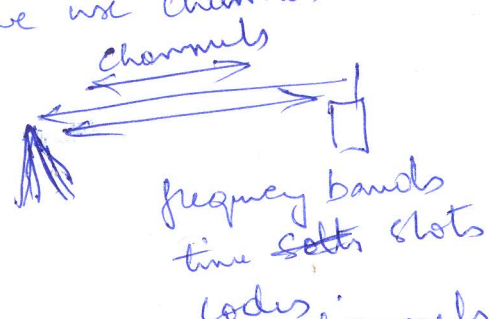 we use channels
channels
frequency bands
time slots
codes